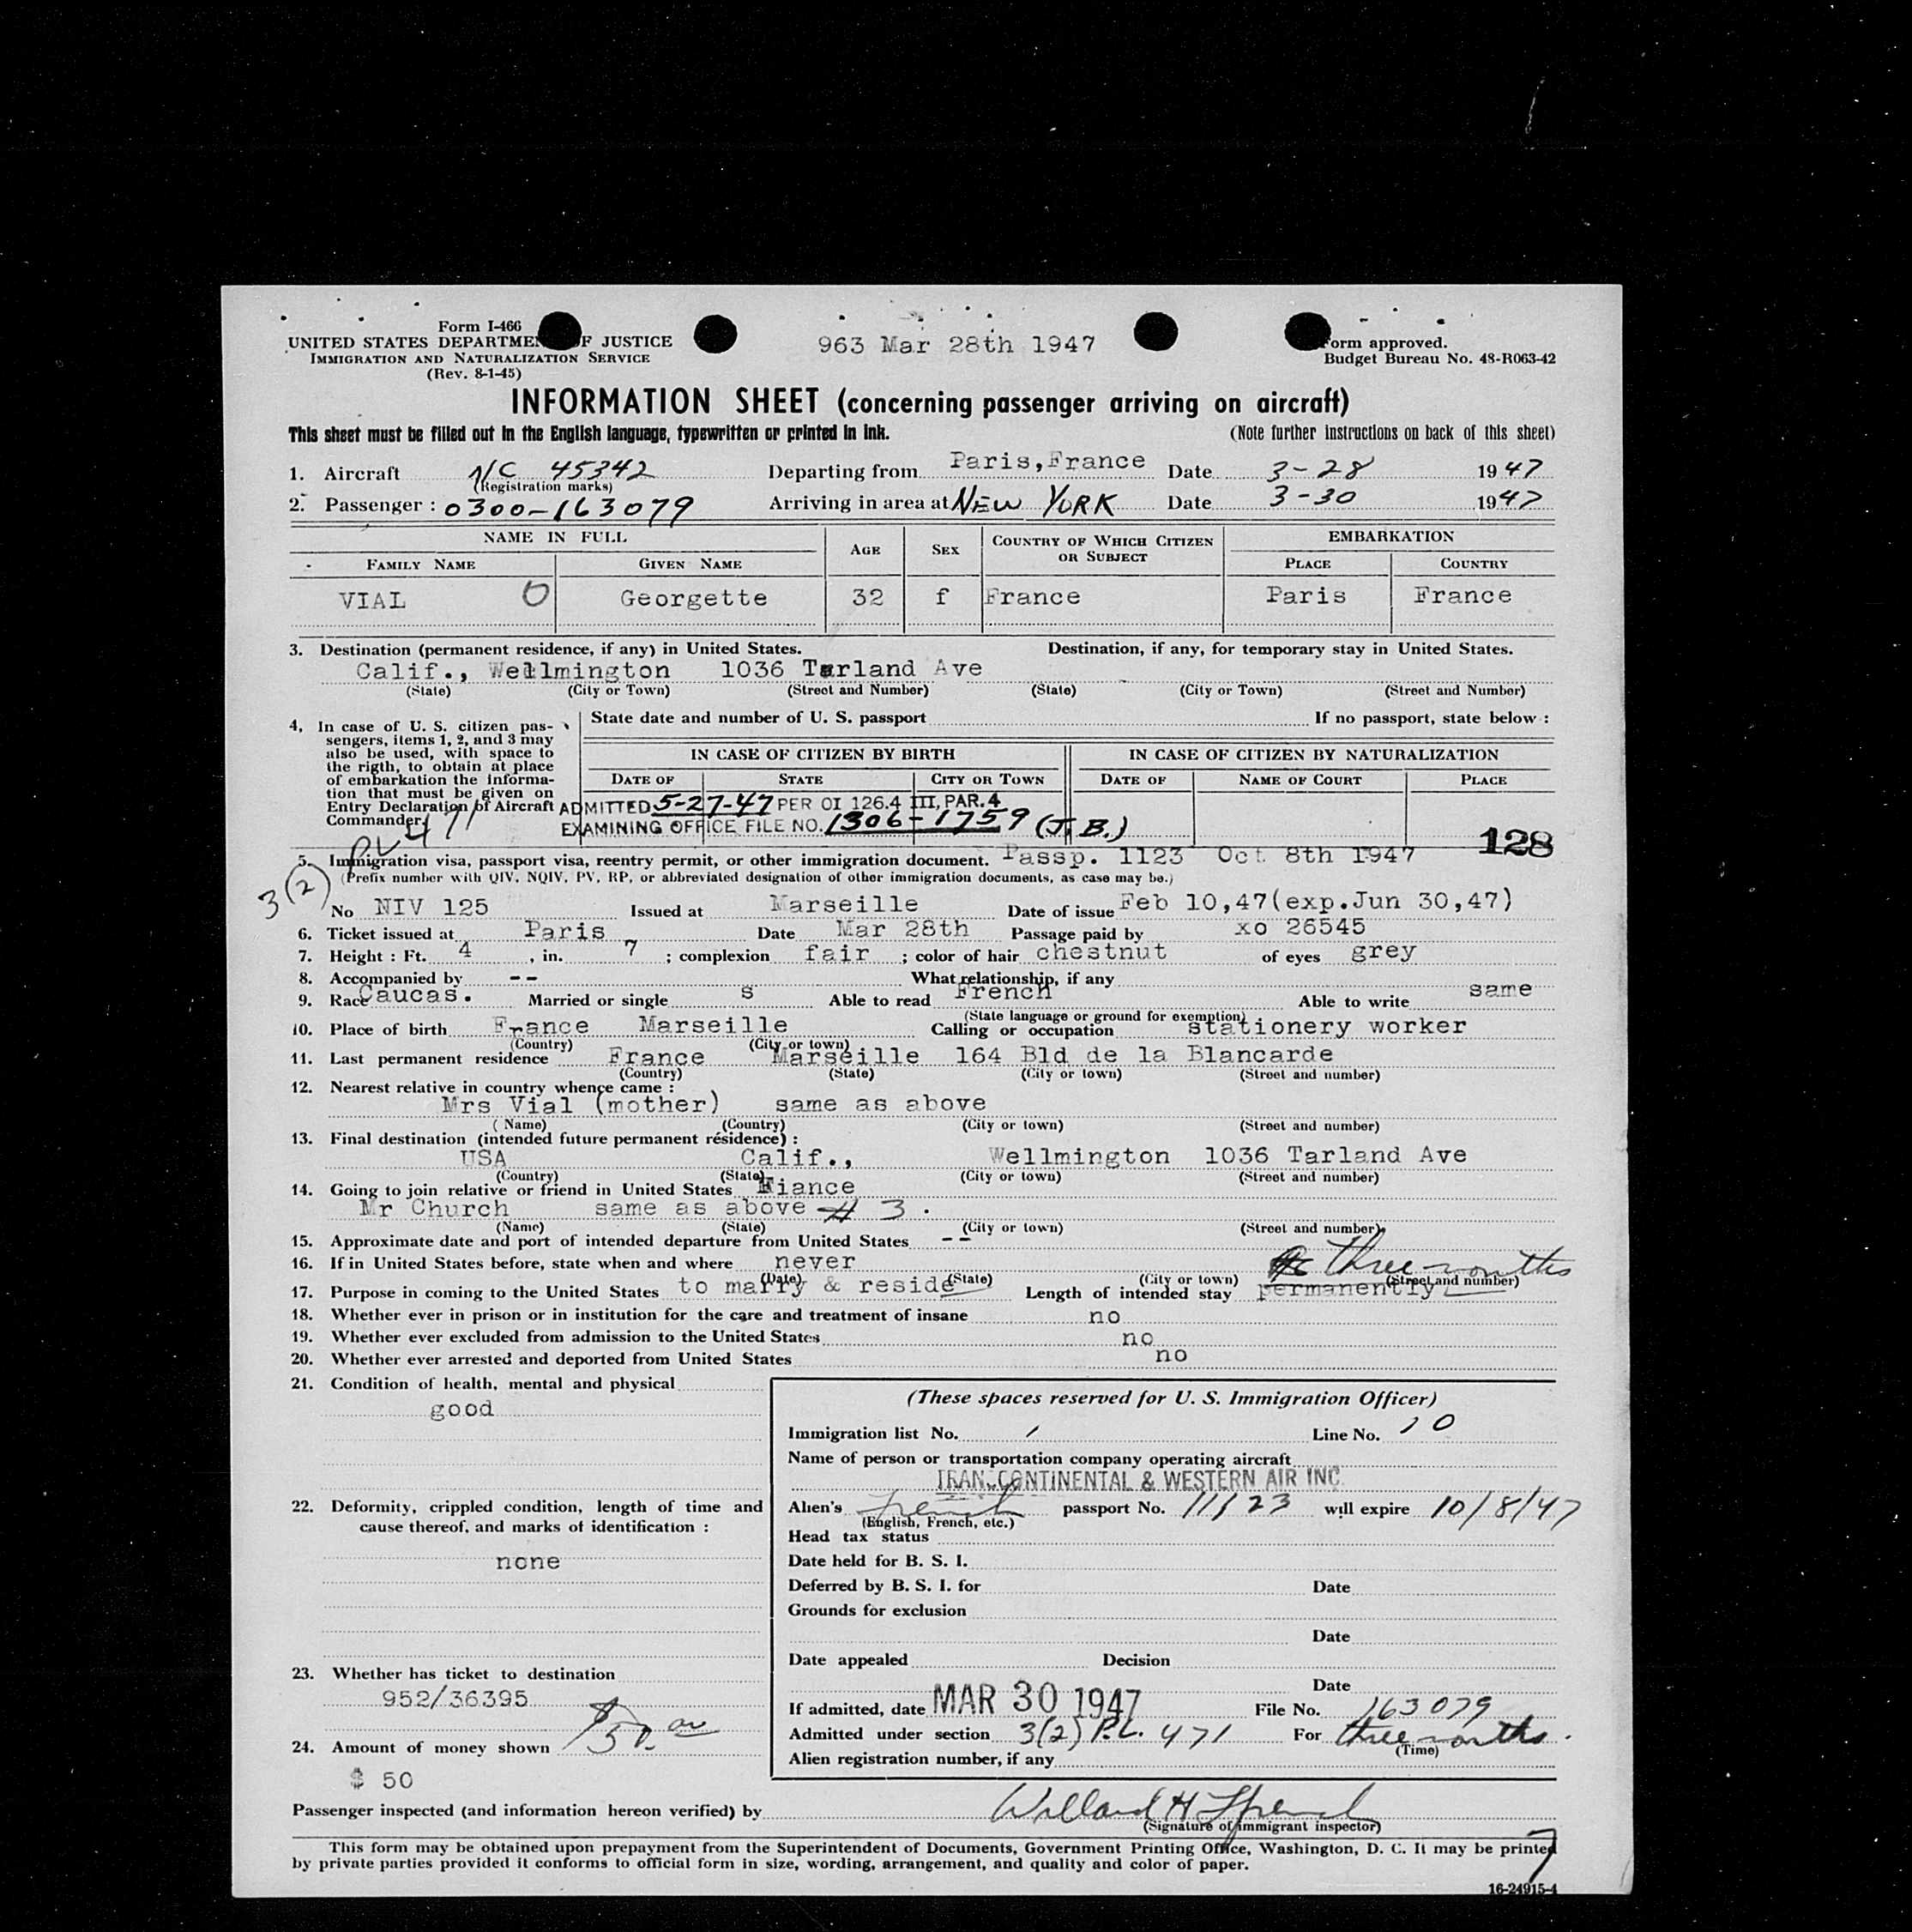 Form I-466
UNITED STATES DEPARTME F JUSTICE
IMMIGRATION AND NATURALIZATION SERVICE
(Rev. 8-1-45)
963 Mar 28th 1947
orm approved.
Budget Bureau No. 43-R063-42
INFORMATION SHEET (concerning passenger arriving on aircraft)
This sheet must be filled out in the English language, typewritten or printed in ink. (Note further instructions on back of this sheet)
1. Aircraft NC 45342 Departing from Paris,France Date 3-28 1947
(Registration marks)
2. Passenger : 0300-163079 Arriving in area at NEW YORK Date 3-30 1947
NAME IN FULL AGE SEX COUNTRY OF WHICH CITIZEN OR SUBJECT EMBARKATION
FAMILY NAME GIVEN NAME PLACE COUNTRY
VIAL 0 Georgette 32 f France Paris France
3. Destination (permanent residence, if any) in United States. Destination, if any, for temporary stay in United States.
Calif., Wellmington 1036 Tarland Ave
(State) (City or Town) (Street and Number) (State) (City or Town) (Street and Number)
4. In case of U. S. citizen pas-
sengers, items 1, 2, and 3 may
also be used, with space to
the rigth, to obtain at place
of embarkation the informa-
tion that must be given on
Entry Declaration of Aircraft
Commander.
State date and number of U. S. passport If no passport, state below :
IN CASE OF CITIZEN BY BIRTH IN CASE OF CITIZEN BY NATURALIZATION
DATE OF STATE CITY OR TOWN DATE OF NAME OF COURT PLACE
ADMITTED 5-27-47 PER OI 126.4 III, PAR. 4
EXAMINING OFFICE FILE NO. 1306-1759 (J.B.)
PL 471
128
5. Immigration visa, passport visa, reentry permit, or other immigration document. Passp. 1123 Oct 8th 1947
(Prefix number with QIV, NQIV, PV, RP, or abbreviated designation of other immigration documents, as case may be.)
3(2)
No NIV 125 Issued at Marseille Date of issue Feb 10,47(exp.Jun 30,47)
6. Ticket issued at Paris Date Mar 28th Passage paid by xo 26545
7. Height : Ft. 4 , in. 7 ; complexion fair ; color of hair chestnut of eyes grey
8. Accompanied by -- What relationship, if any
9. Race Caucas. Married or single s Able to read French Able to write same
(State language or ground for exemption)
10. Place of birth France Marseille Calling or occupation stationery worker
(Country) (City or town)
11. Last permanent residence France Marseille 164 Bld de la Blancarde
(Country) (State) (City or town) (Street and number)
12. Nearest relative in country whence came :
Mrs Vial (mother) same as above
(Name) (Country) (City or town) (Street and number)
13. Final destination (intended future permanent résidence) :
USA Calif., Wellmington 1036 Tarland Ave
(Country) (State) (City or town) (Street and number)
14. Going to join relative or friend in United States Fiance
Mr Church same as above # 3 .
(Name) (State) (City or town) (Street and number)
15. Approximate date and port of intended departure from United States --
16. If in United States before, state when and where never
(Date) (State) (City or town) (Street and number)
three months
17. Purpose in coming to the United States to marry & reside Length of intended stay permanently
18. Whether ever in prison or in institution for the care and treatment of insane no
19. Whether ever excluded from admission to the United States no
20. Whether ever arrested and deported from United States no
21. Condition of health, mental and physical
good
22. Deformity, crippled condition, length of time and
cause thereof, and marks of identification :
none
23. Whether has ticket to destination
952/36395
24. Amount of money shown $50.00
$ 50
(These spaces reserved for U. S. Immigration Officer)
Immigration list No. 1 Line No. 10
Name of person or transportation company operating aircraft
TRANSCONTINENTAL & WESTERN AIR INC.
Alien's French passport No. 11123 will expire 10/8/47
(English, French, etc.)
Head tax status
Date held for B. S. I.
Deferred by B. S. I. for Date
Grounds for exclusion
Date
Date appealed Decision
Date
If admitted, date MAR 30 1947 File No. 163079
Admitted under section 3(2) P.L. 471 For three months.
(Time)
Alien registration number, if any
Passenger inspected (and information hereon verified) by Willard H
(Signature of immigrant inspector)
This form may be obtained upon prepayment from the Superintendent of Documents, Government Printing Office, Washington, D. C. It may be printed
by private parties provided it conforms to official form in size, wording, arrangement, and quality and color of paper.
7
16-24915-4